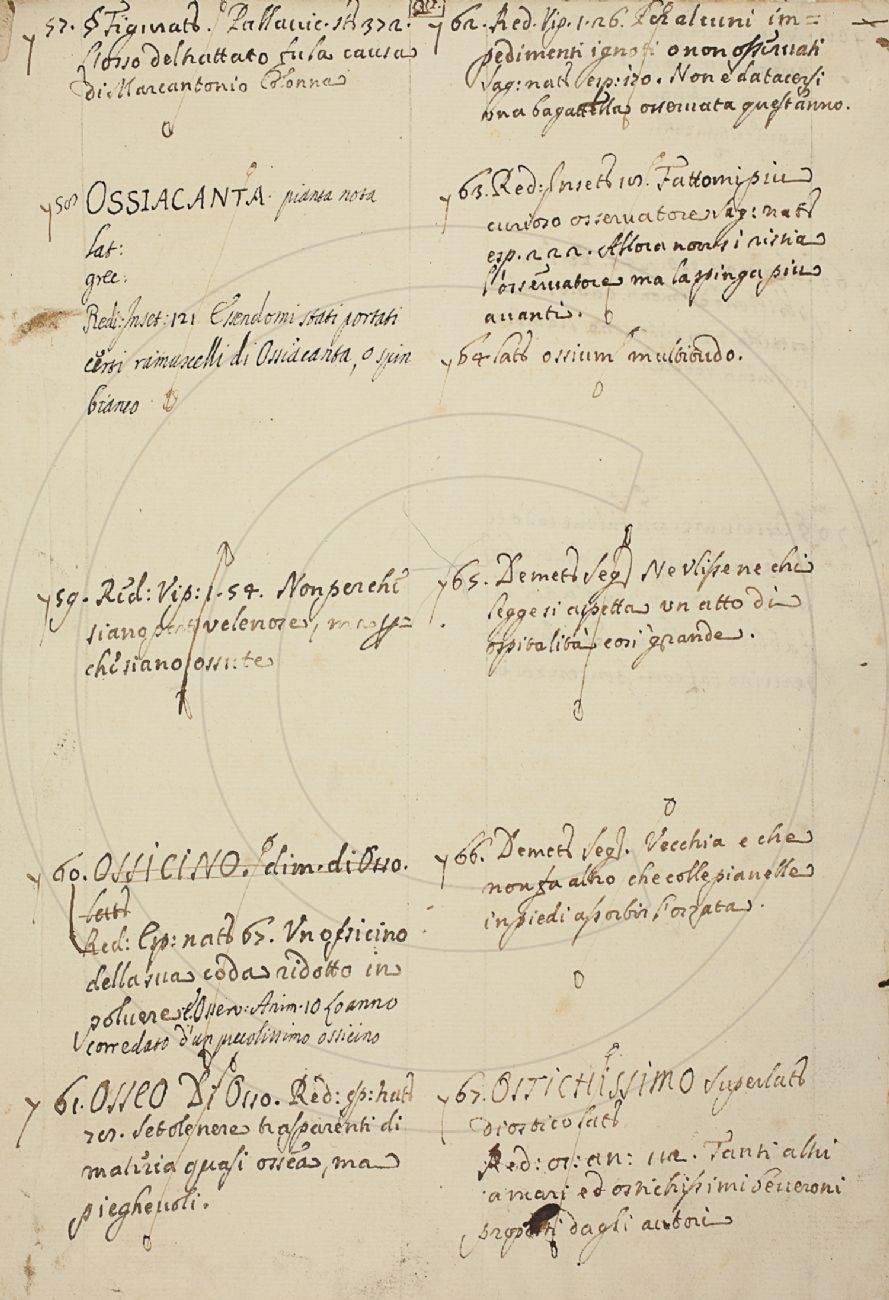 57. § Figurats. Pallavic. sts 372.
L'osso del trattato fu la causa
di Marcantonio Colonna
58 OSSIACANTA. pianta nota
lat:
grec:
Redi: Inset: 121 Essendomi stati portati
certi ramuscelli di Ossiacanta, o spin
bianco
59. Red: Vip: 1. 54. Non perché
siano velenose, ma
ché siano ossute
60. OSSICINO. dim. di Osso.
latts
Red: Esp: nats 67. Un ossicino
della sua coda ridotto in
polvere Osserv: Anim. 10 Lo anno
corredato d'un piccolissimo ossicino
61. OSSEO Di Osso. Red: esp: nats
Setole nere trasparenti di
materia quasi ossea, ma
pieghevoli.
62. Red. Vip. 1. 26. alcuni im=
pedimenti ignoti o non osservati
Sag: nats esp: 130. Non è da tacersi
una bagattella osservata quest'anno.
63. Red: Insets Fattomi piu
curioso osservatore Sag: nats
esp. 222. Allora non si ristia
l'osservatore ma la spinga piu
avanti.
64 lats ossium multitudo.
65. Demets Segt Ne Ulisse ne chi
legge si aspetta un atto di
ospitalità cosi grande.
66. Demets Segt. Vecchia e che
non fa altro che colle pianelle
in piedi assorbir l'orzata.
67. OSTICHISSIMO Superlats
di ostico lats
Red: os: an: 112. Tanti altri
amari ed ostichissimi beveroni
proposti dagli autori